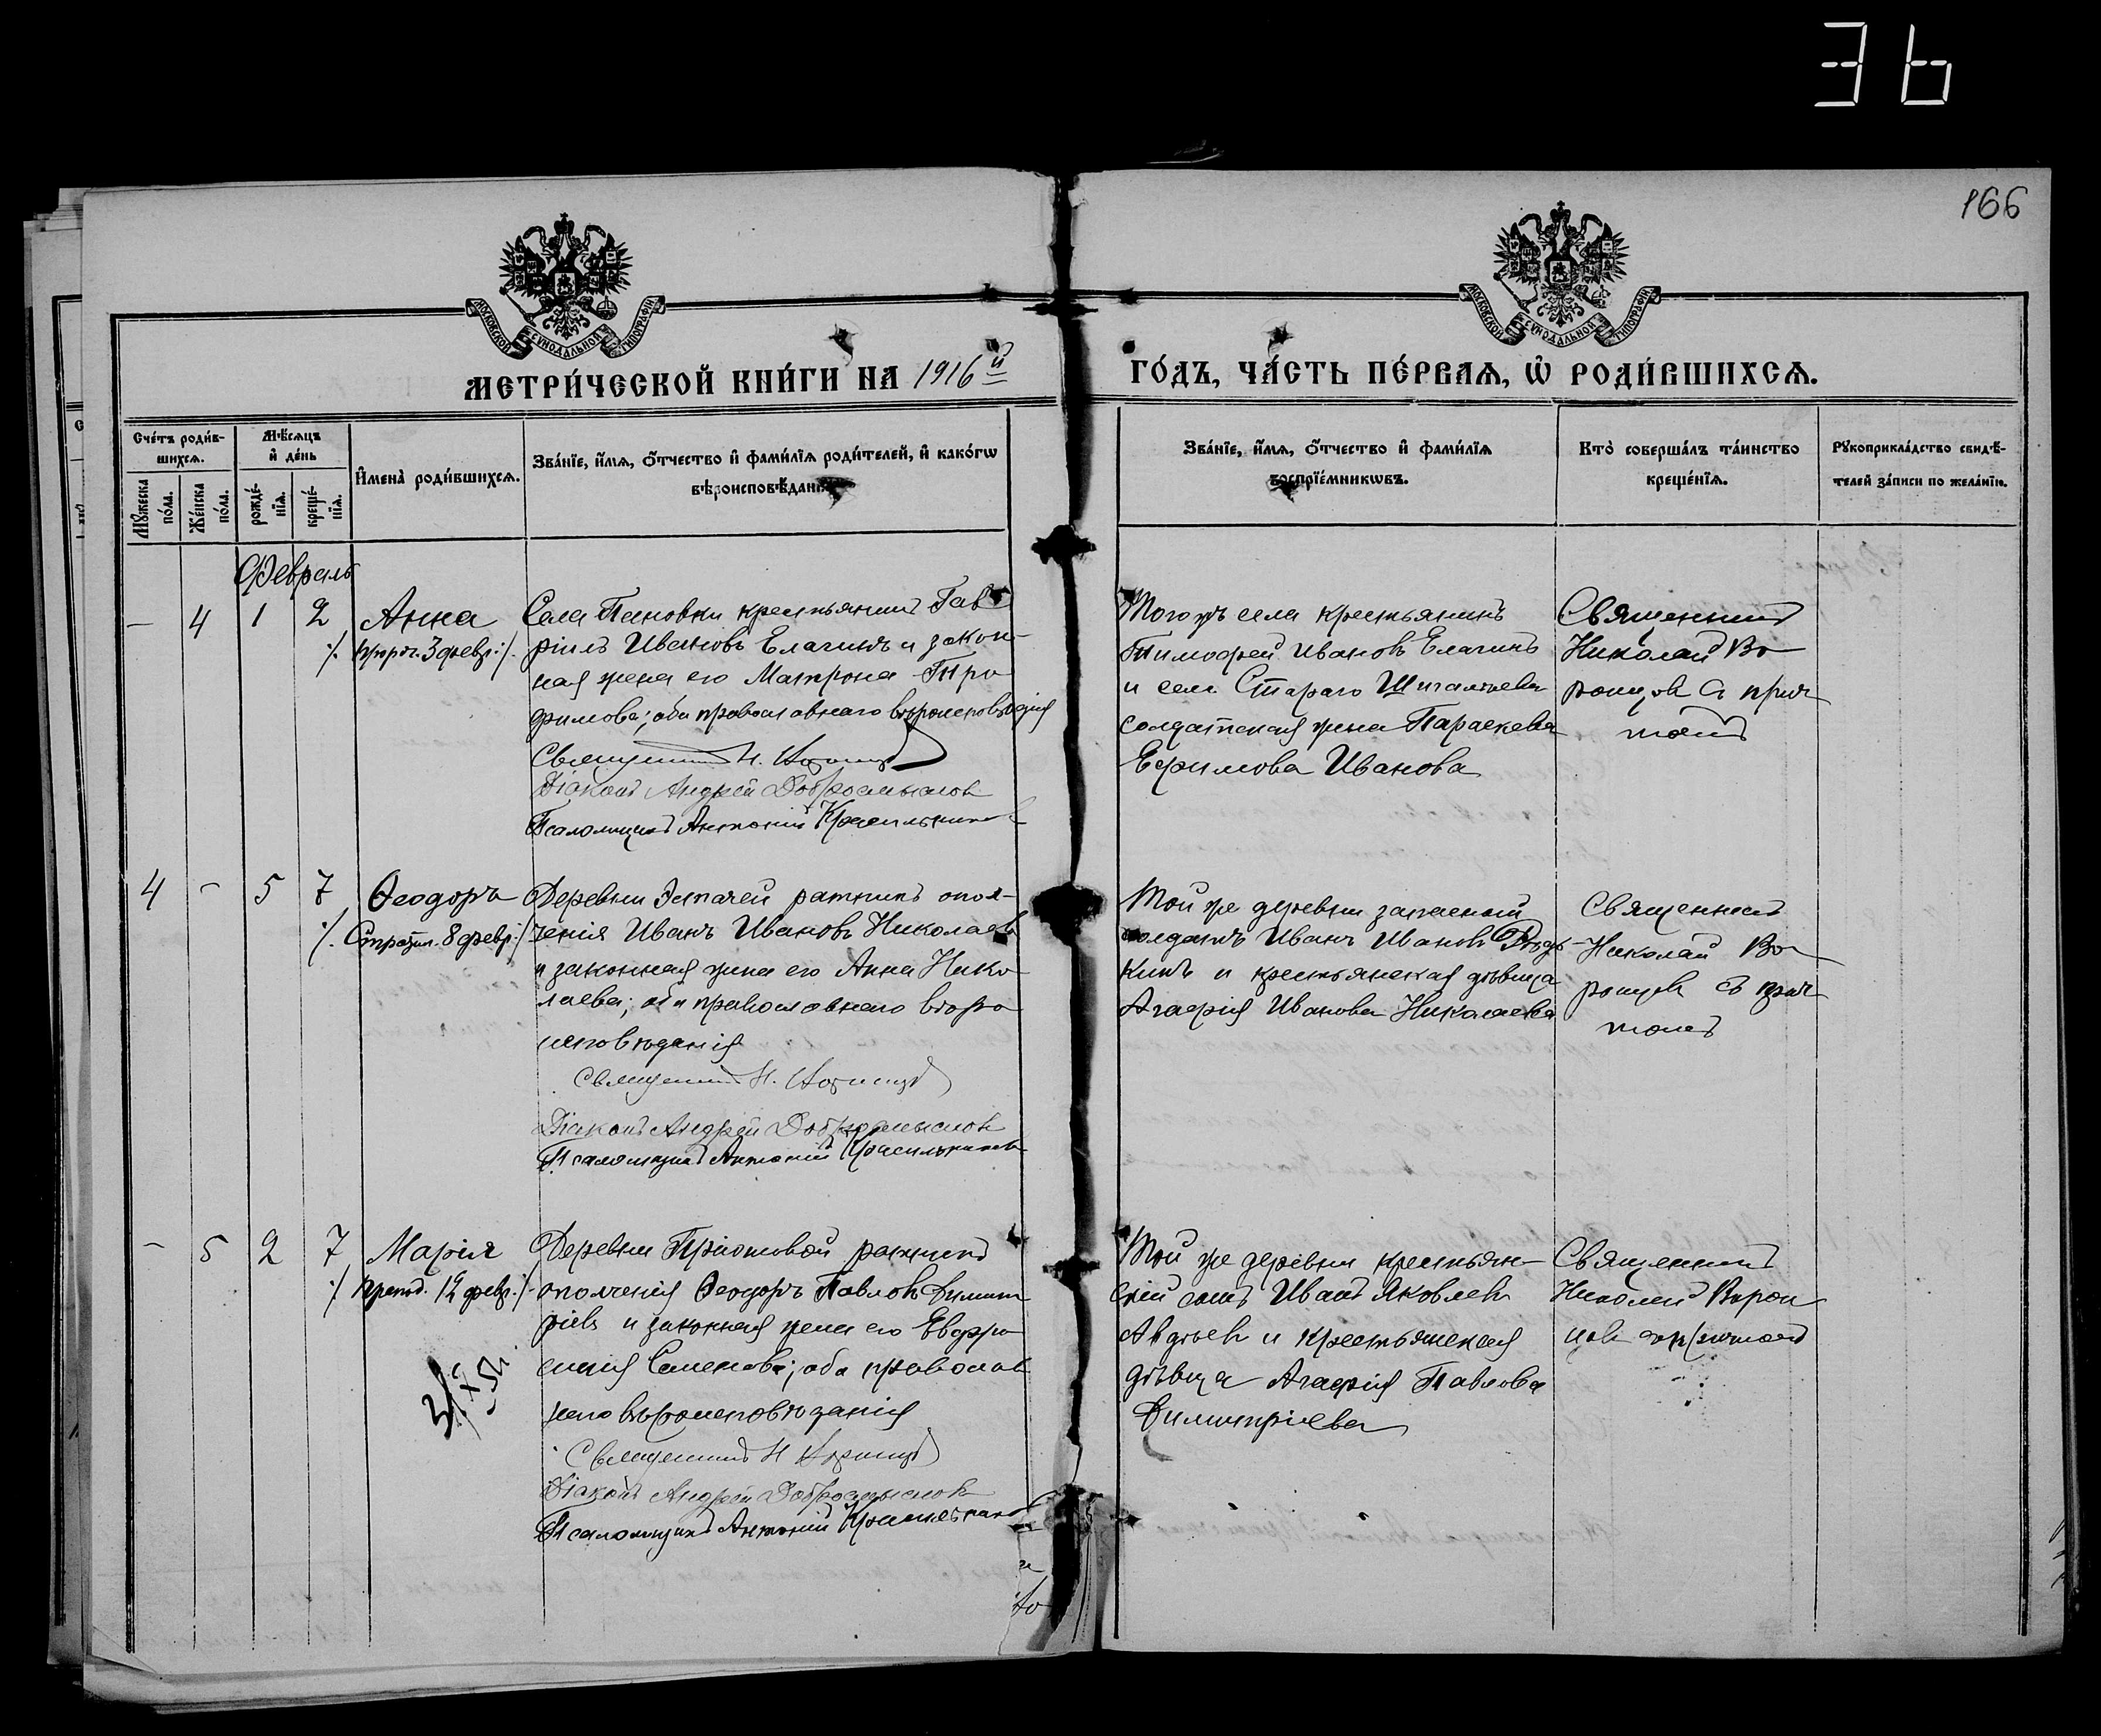 ЭЬ
166
МОСКОВСКОЙ СУНОДАЛЬНОЙ ТИПОГРАФІИ
МОСКОВСКОЙ СУНОДАЛЬНОЙ ТИПОГРАФІИ
МЕТРИ́ЧЕСКОЙ КНИ́ГИ НА 1916й
ГО́ДЪ, ЧА́СТЬ ПЕ́РВАѦ, Ѡ҆ РОДИ́ВШИХСѦ.
Сче́тъ роди́в-
шихсѧ.
Мѣ́сѧцъ
и҆ де́нь
Мꙋ́жеска
по́ла.
Же́нска
по́ла.
рожде́-
нїѧ.
креще́-
нїѧ.
И҆мена̀ роди́вшихсѧ.
Зва́нїе, и҆́мѧ, ѻ҆́тчество и҆ фами́лїѧ роди́телей, и҆ како́гѡ
вѣроисповѣ́данїѧ
Зва́нїе, и҆́мѧ, ѻ҆́тчество и҆ фами́лїѧ
воспрїе́мникѡвъ.
Кто̀ соверша́лъ та́инство
креще́нїѧ.
Рꙋкоприкла́дство свидѣ́-
телей за́писи по жела́нїю.
Февраль
— 4 1 2 Анна
·/. прор. 3 февр. ·/.
Села Пановки крестьянинъ Гав-
ріилъ Ивановъ Елагинъ и закон-
ная жена его Матрона Тро-
фимова; оба православнаго вѣроисповѣданія
Священникъ Н. Воронцовъ
Діаконъ Андрей Добросмысловъ
Псаломщикъ Антоній Красильниковъ
Тогожъ села крестьянинъ
Тимофей Ивановъ Елагинъ
и села Стараго
солдатская жена Параскева
Ефимова Иванова
Священникъ
Николай Во-
ронцовъ съ прич-
томъ
4 — 5 7 Ѳеодоръ
·/. Стратил. 8 февр. ·/.
Деревни ратникъ опол-
ченія Иванъ Ивановъ Николаевъ
и законная жена его Анна Нико-
лаева; оба православнаго вѣро-
исповѣданія
Священникъ Н. Воронцовъ
Діаконъ Андрей Добросмысловъ
Псаломщикъ Антоній Красильниковъ
Той же деревни запасный
солдатъ Иванъ Ивановъ
и крестьянская дѣвица
Агафія Иванова Николаева
Священникъ
Николай Во-
ронцовъ съ прич-
томъ
— 5 2 7 Марія
·/. препод. 12 февр. ·/.
Деревни ратникъ
ополченія Ѳеодоръ Павловъ Димит-
ріевъ и законная жена его Евфро-
синія Семенова; оба православ-
наго вѣроисповѣданія
Священникъ Н. Воронцовъ
Діаконъ Андрей Добросмысловъ
Псаломщикъ Антоній Красильниковъ
Той же деревни крестьян-
скій сынъ Иванъ Яковлевъ
Авдѣевъ и крестьянская
дѣвица Агафія Павлова
Димитріева
Священникъ
Николай Ворон-
цовъ съ причтомъ